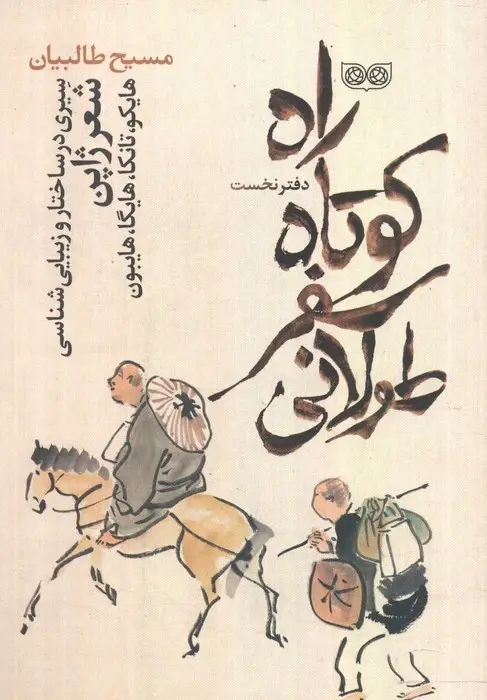 راه
کوتاه
سفر
طولانی
دفتر نخست
مسیح طالبیان
سیری در ساختار و زیبایی شناسی
شعر ژاپن
هایکو، تانکا، هایگا، هایبون